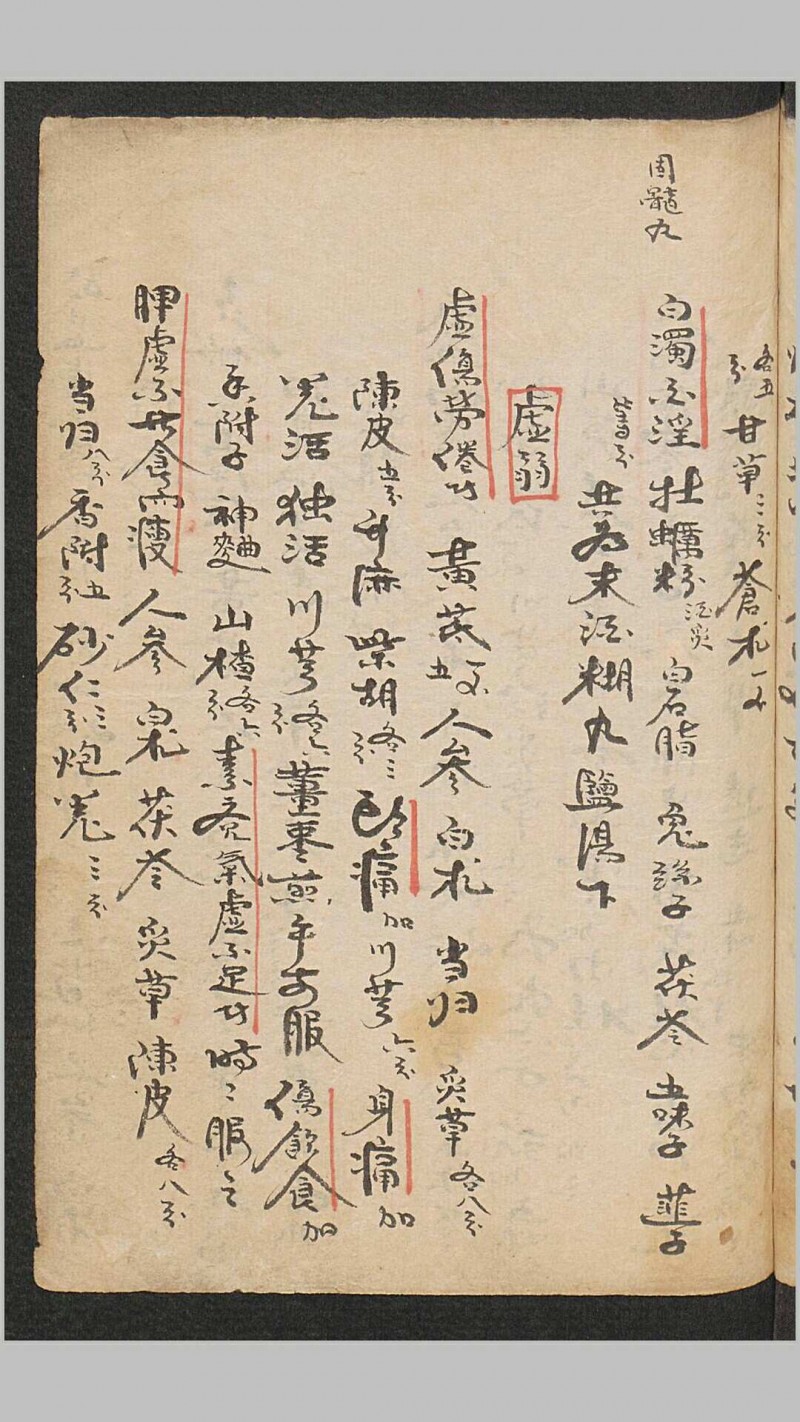 各五分 甘草三分 蒼朮一不
固髓丸
白濁白淫 牡蠣粉酒炙 白石脂 兔絲子 茯苓 五味子 韮子
等分 共為末酒糊丸鹽湯下
虛弱
虛傷勞倦 黃芪五分 人參 白朮 当归 炙草各八分
陳皮五分 升麻 柴胡各三分 頭痛加川芎六分 身痛加
羌活 独活 川芎各六分 薑棗煎午前服 傷飲食加
香附子 神麯 山楂各六分 素有氣虛不足 時〻服之
脾虛不甘食而瘦 人參 白朮 茯苓 炙草 陳皮各八分
当归八分 香附五分 砂仁三分 炮羌三分